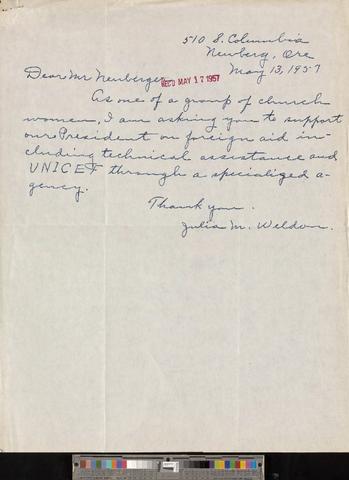 510 S. Columbia
Newberg, Ore
May 13, 1957
Dear Mr Neuberger
REC'D MAY 17 1957
As one of a group of church
women, I am asking you to support
our President on foreign aid in-
cluding technical assistance and
UNICEF through a specialized a-
gency.
Thank you.
Julia M. Weldon.